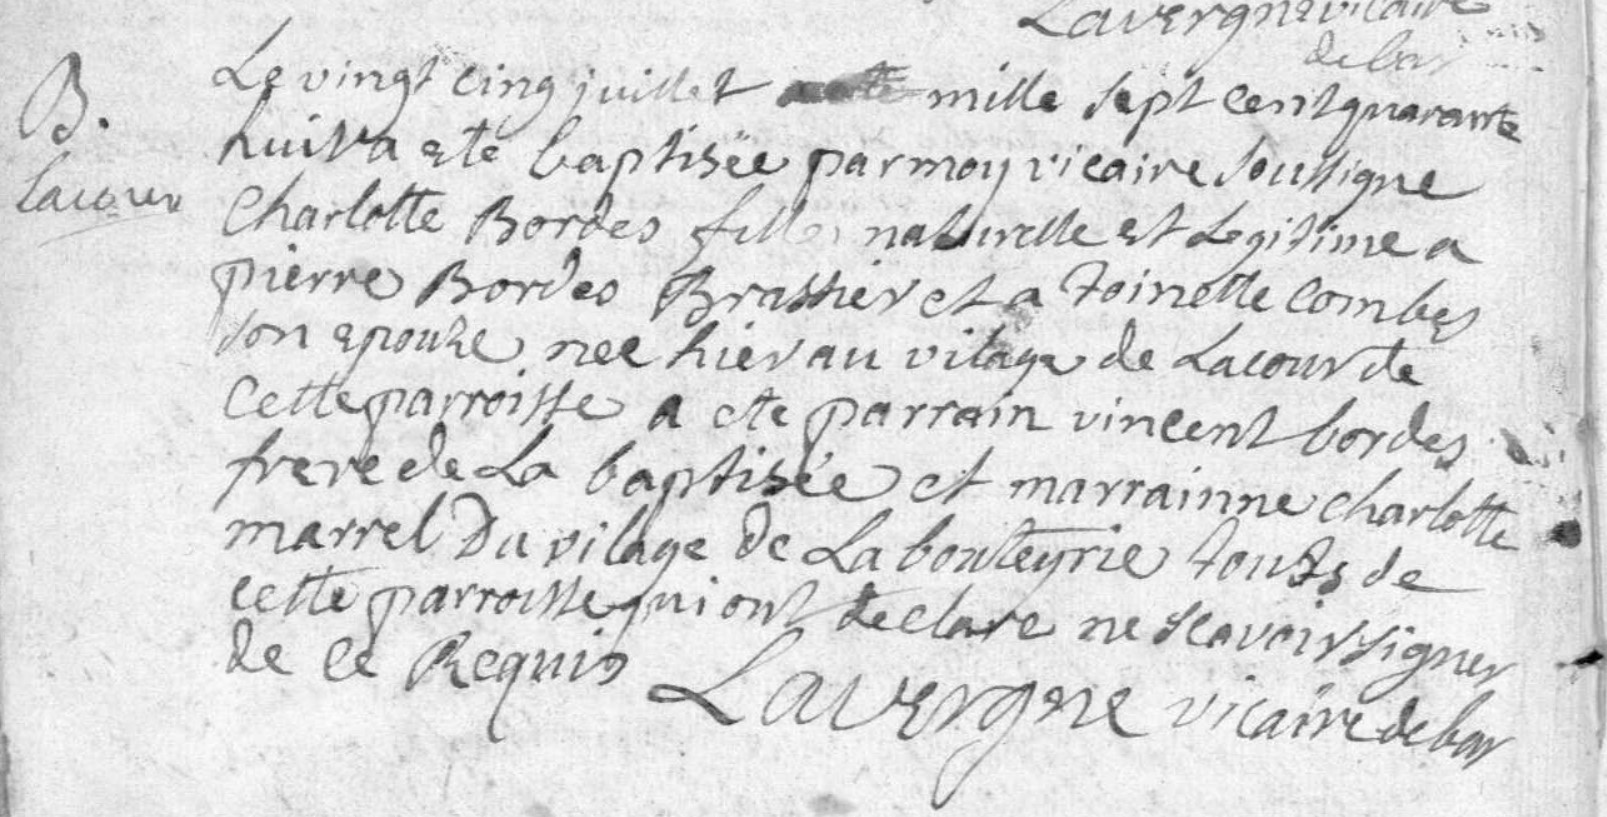 Lavergne vicaire
de bar
B.
Lacour
Le vingt cinq juillet mille sept cent quarante
huit a ete baptisée par moy vicaire soussigne
Charlotte Bordes fille naturelle et Legitime a
pierre Bordes Brassier et a toinette Combes
son epouse nee hier au vilage de Lacour de
cette parroisse a ete parrain vincent bordes
frere de La baptisée et marrainne charlotte
marrel Du vilage de La bouteyrie touts de
cette parroisse qui ont declare ne scavoir signer
de ce Requis Lavergne vicaire de bar